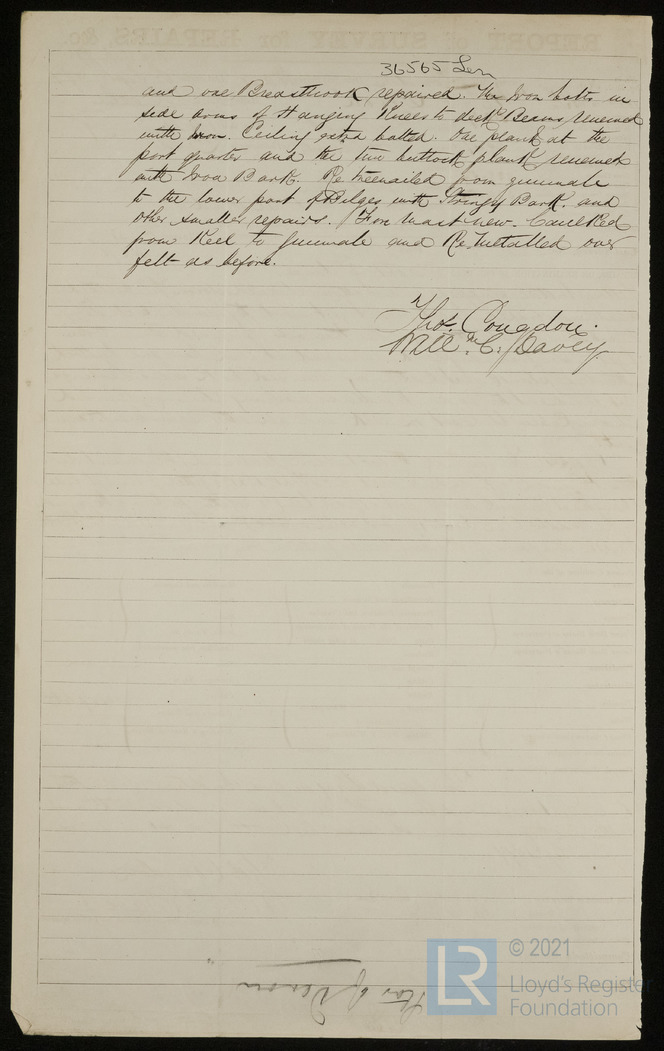 36565 Lon
and one Breasthook repaired. The Iron bolts in
side arms of Hanging Knees to deck Beams renewed
with Iron. Ceiling extra bolted. One plank at the
port quarter and the two buttock plank renewed
with Iron Bark. Re treenailed from gunwale
to the lower part of Bilges with Stringy Bark, and
other smaller repairs. Fore mast new. Caulked
from Keel to Gunwale and Re.Metalled over
felt as before.
Thos. Congdon.
Will.m C. Davey
Star of Devon
© 2021
LR
Lloyd's Register
Foundation